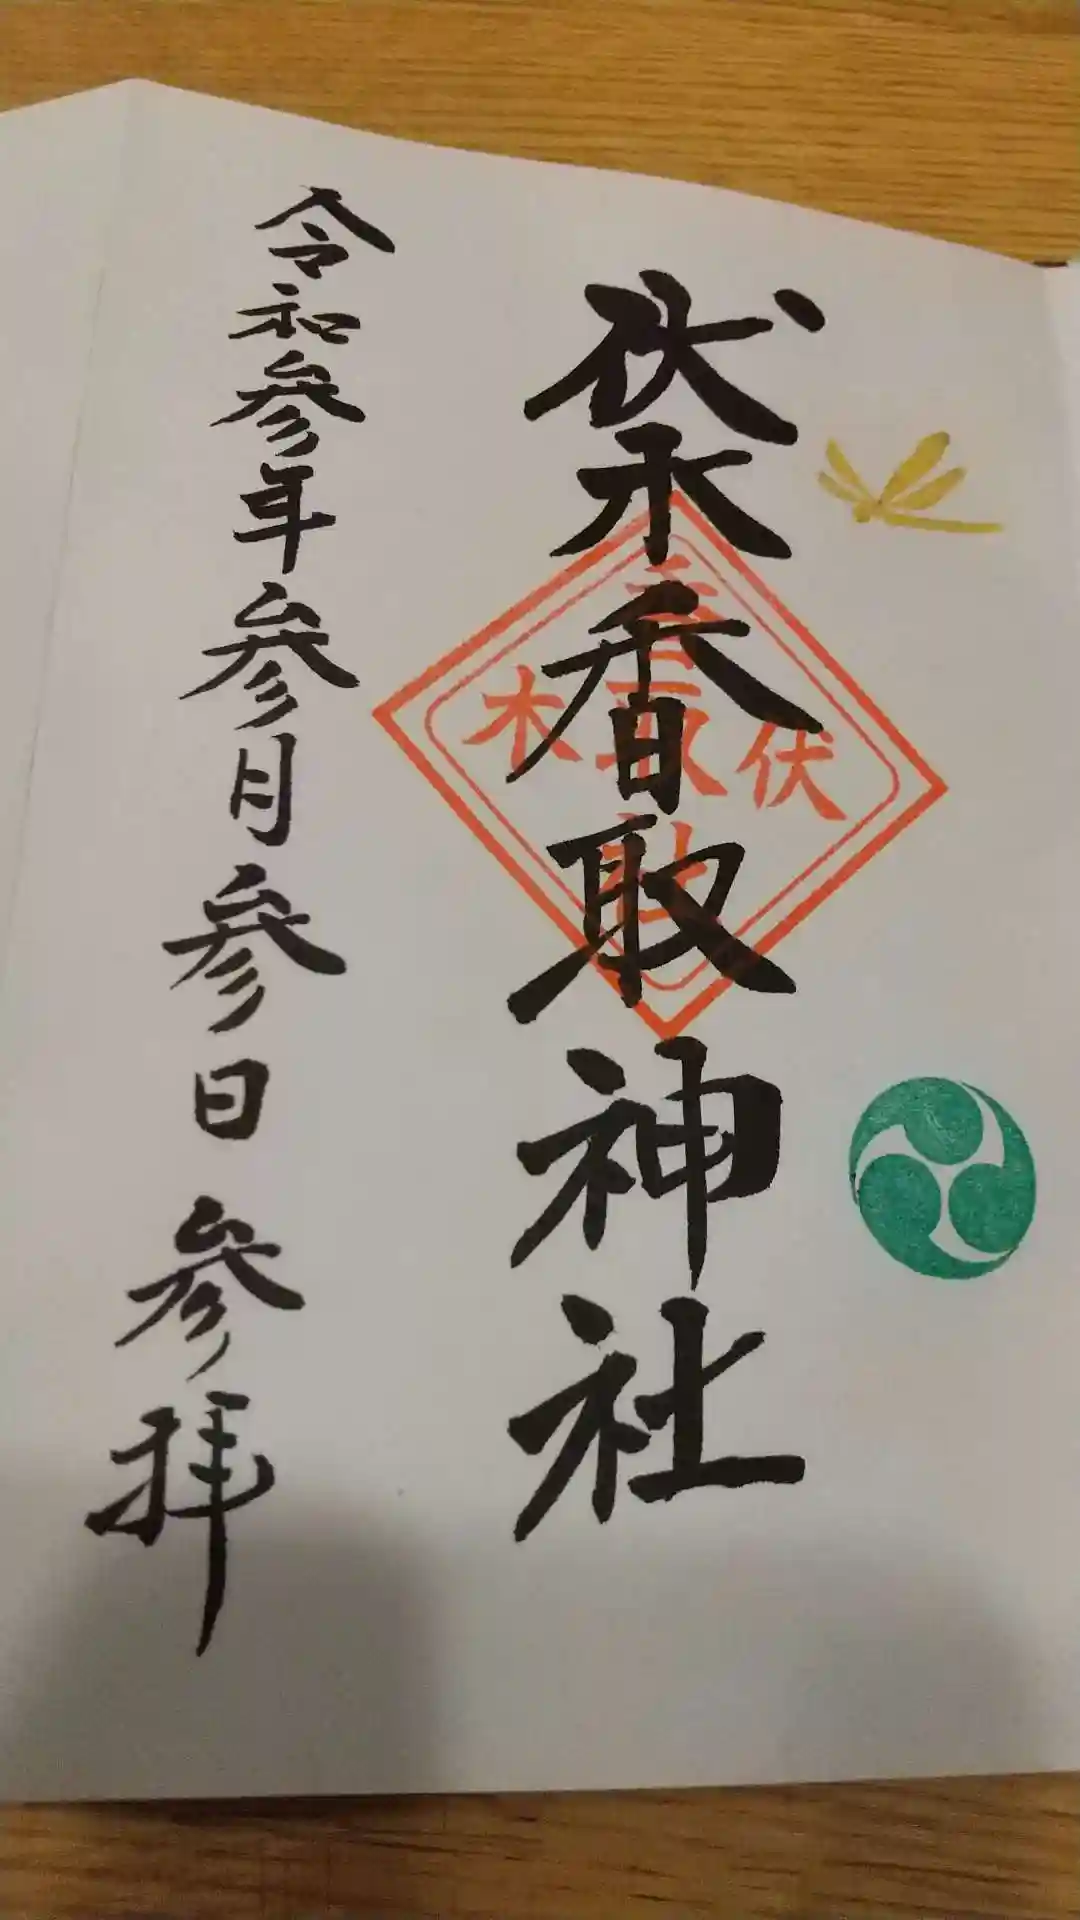 伏木香取神社
伏木
香取社
令和参年参月参日 参拝